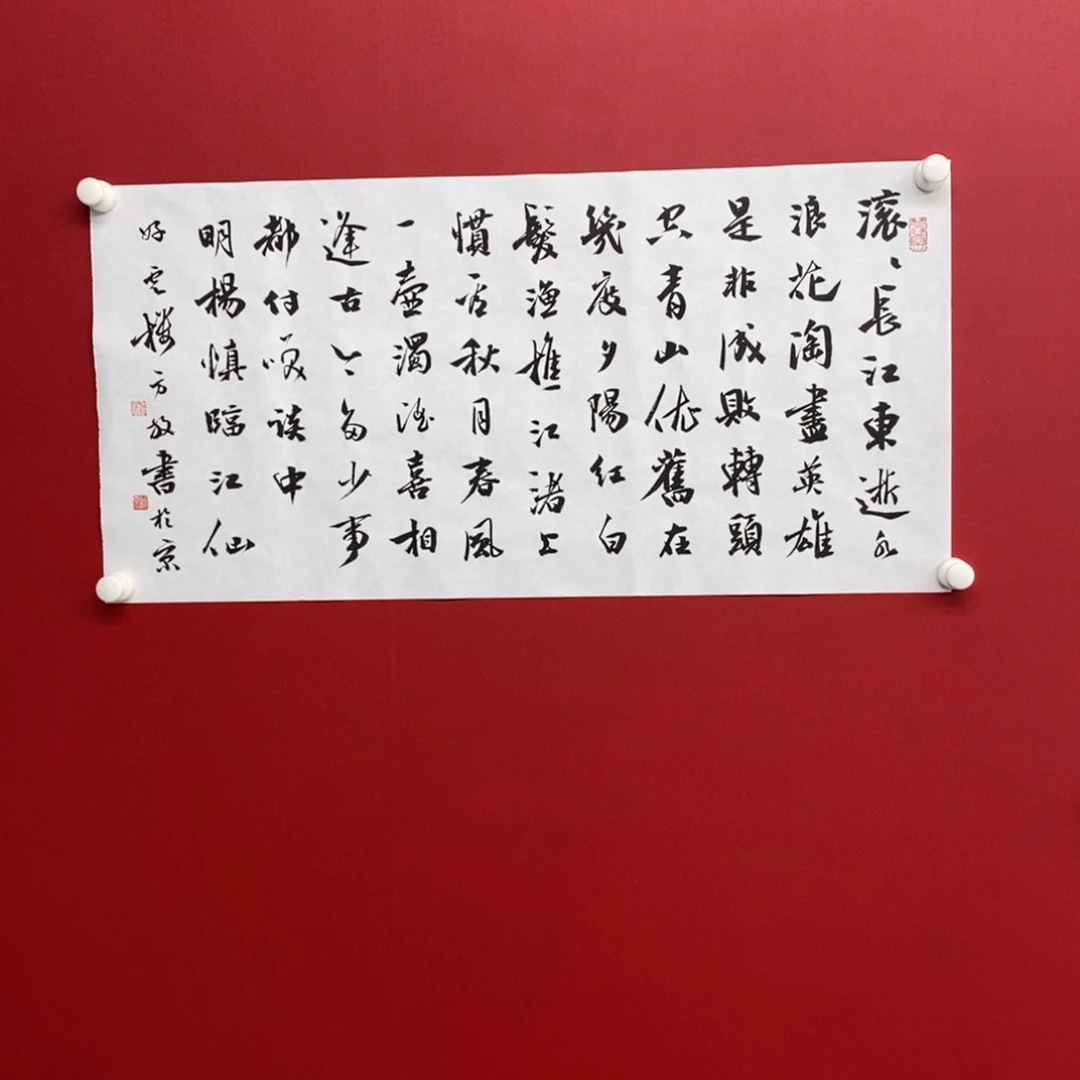 滚〻長江東逝水
浪花淘盡英雄
是非成敗轉頭
空青山依舊在
幾度夕陽紅白
髮漁樵江渚上
慣看秋月春風
一壺濁酒喜相
逢古今多少事
都付笑談中
明楊慎臨江仙
好雲樓方放書於京